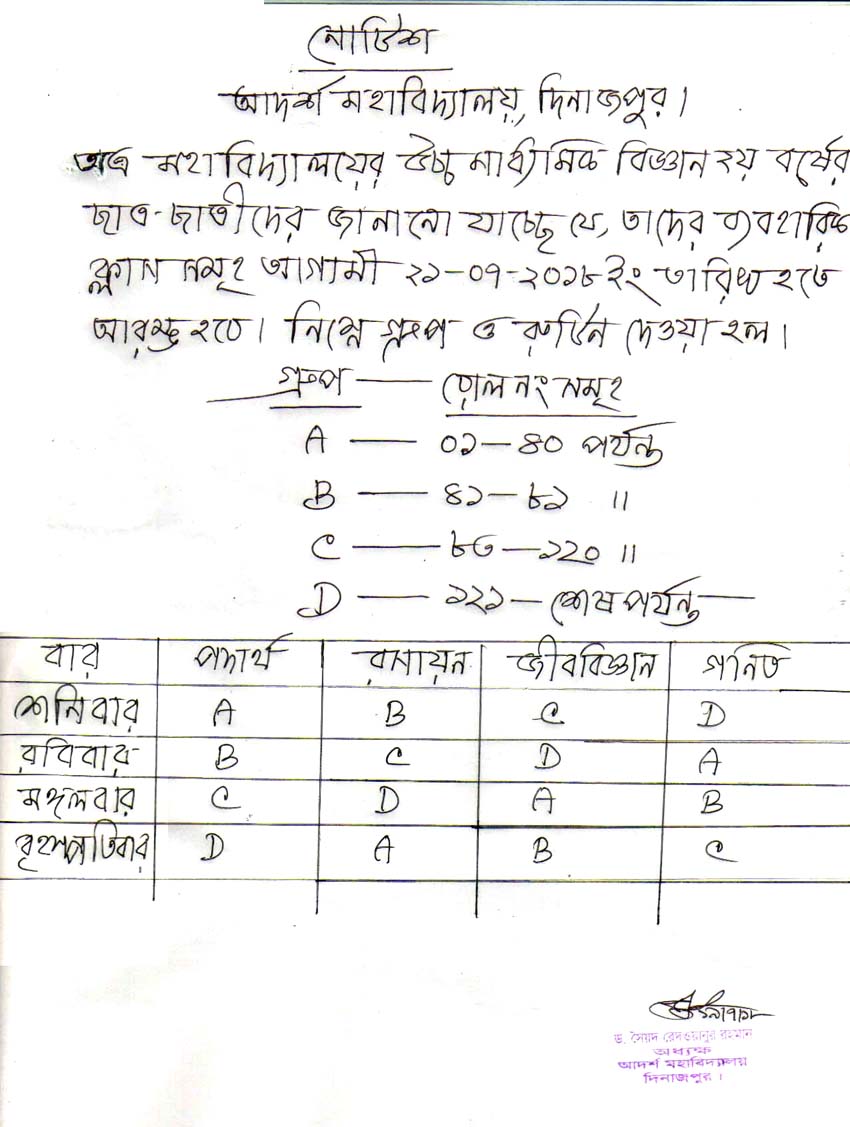 নোটিশ
আদর্শ মহাবিদ্যালয়, দিনাজপুর।
অত্র মহাবিদ্যালয়ের উচ্চ মাধ্যমিক বিজ্ঞান ২য় বর্ষের
ছাত্র-ছাত্রীদের জানানো যাচ্ছে যে, তাদের ব্যবহারিক
ক্লাস সমূহ আগামী ২১-০৭-২০১৮ ইং তারিখ হতে
আরম্ভ হবে। নিম্নে গ্রুপ ও রুটিন দেওয়া হল।
গ্রুপ — রোল নং সমূহ
A — ০১-৪০ পর্যন্ত
B — ৪১-৮২ "
C — ৮৩-১২০ "
D — ১২১- শেষ পর্যন্ত —
বার পদার্থ রসায়ন জীববিজ্ঞান গনিত
শনিবার A B C D
রবিবার B C D A
মঙ্গলবার C D A B
বৃহস্পতিবার D A B C
ড. সৈয়দ রেদওয়ানুর রহমান
অধ্যক্ষ
আদর্শ মহাবিদ্যালয়
দিনাজপুর।